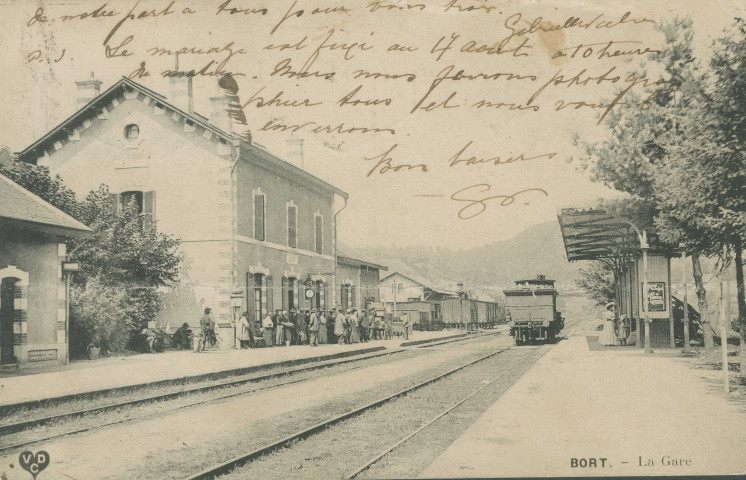 de notre part a tous pour vous voir.
P. S. Le mariage est fixé au 17 août a 10 heures
du matin. Nous nous ferons photogra
phier tous et nous vous
enverrons
Bons baisers
BORT. - La Gare
VDC